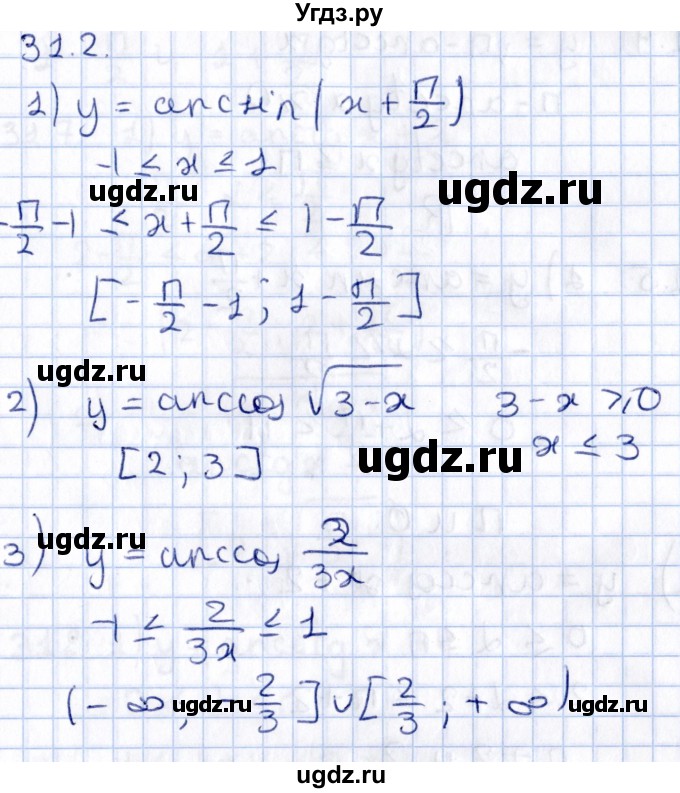 Угдз.ру
31.2.
1) y = arcsin(x + П/2)
-1 ≤ x ≤ 1
ugdz.ru ugdz.ru
-П/2 - 1 ≤ x + П/2 ≤ 1 - П/2
[-П/2 - 1; 1 - П/2]
ugdz.ru
2) y = arccos √(3-x) 3 - x ≥ 0
[2; 3] ugdz.ru x ≤ 3
ugdz.ru
3) y = arccos 2/3x
-1 ≤ 2/3x ≤ 1
(-∞; -2/3] ∪ [2/3; +∞)
ugdz.ru ugdz.ru ugdz.ru
ugdz.ru